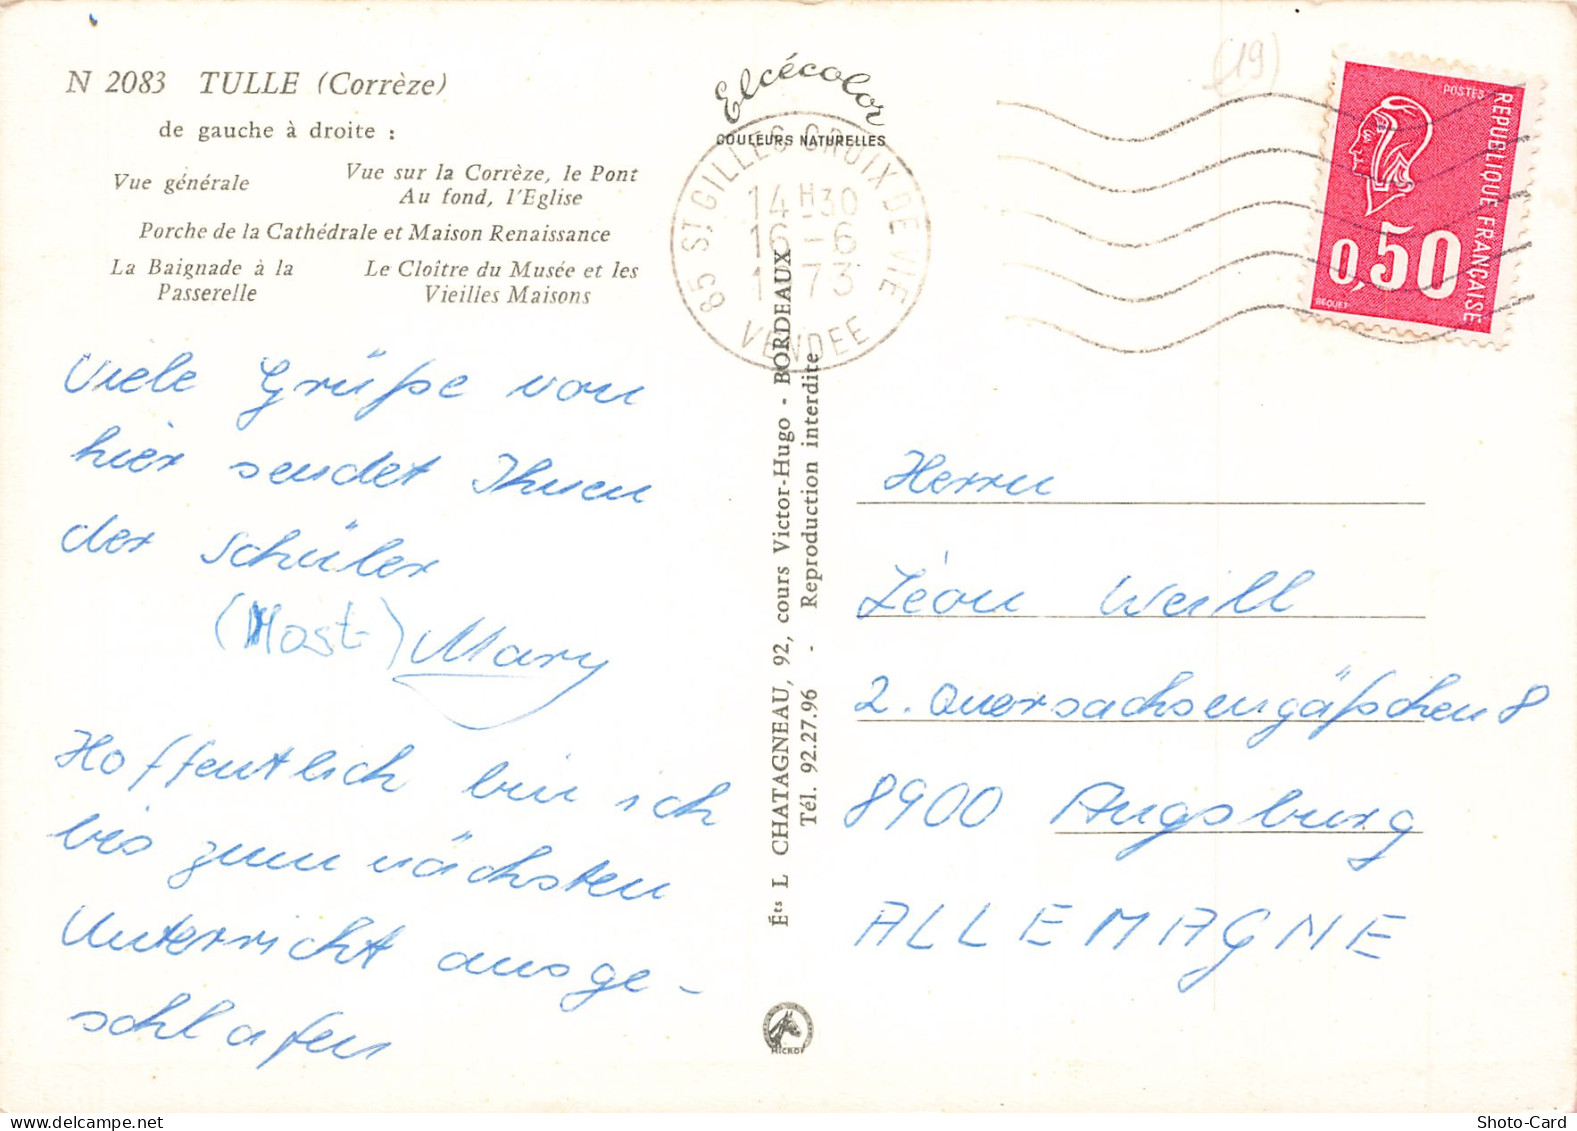 N 2083 TULLE (Corrèze)
de gauche à droite :
Vue générale
Vue sur la Corrèze, le Pont
Au fond, l'Eglise
Porche de la Cathédrale et Maison Renaissance
La Baignade à la
Passerelle
Le Cloître du Musée et les
Vieilles Maisons
Viele Grüße von
hier sendet Ihnen
der Schüler
(Host) Mary
Hoffentlich bin ich
bis zum nächsten
Unterricht ausge-
schlafen
Elcécolor
COULEURS NATURELLES
85 ST GILLES CROIX DE VIE
14H30
16-6
1973
VENDEE
Éts L CHATAGNEAU, 92, cours Victor-Hugo - BORDEAUX
Tél. 92.27.96 - Reproduction interdite
MICROF
(19)
POSTES
REPUBLIQUE FRANÇAISE
0,50
BEQUET
Herrn
Léon Weill
2. Quersachsengäßchen 8
8900 Augsburg
ALLEMAGNE
Shoto-Card